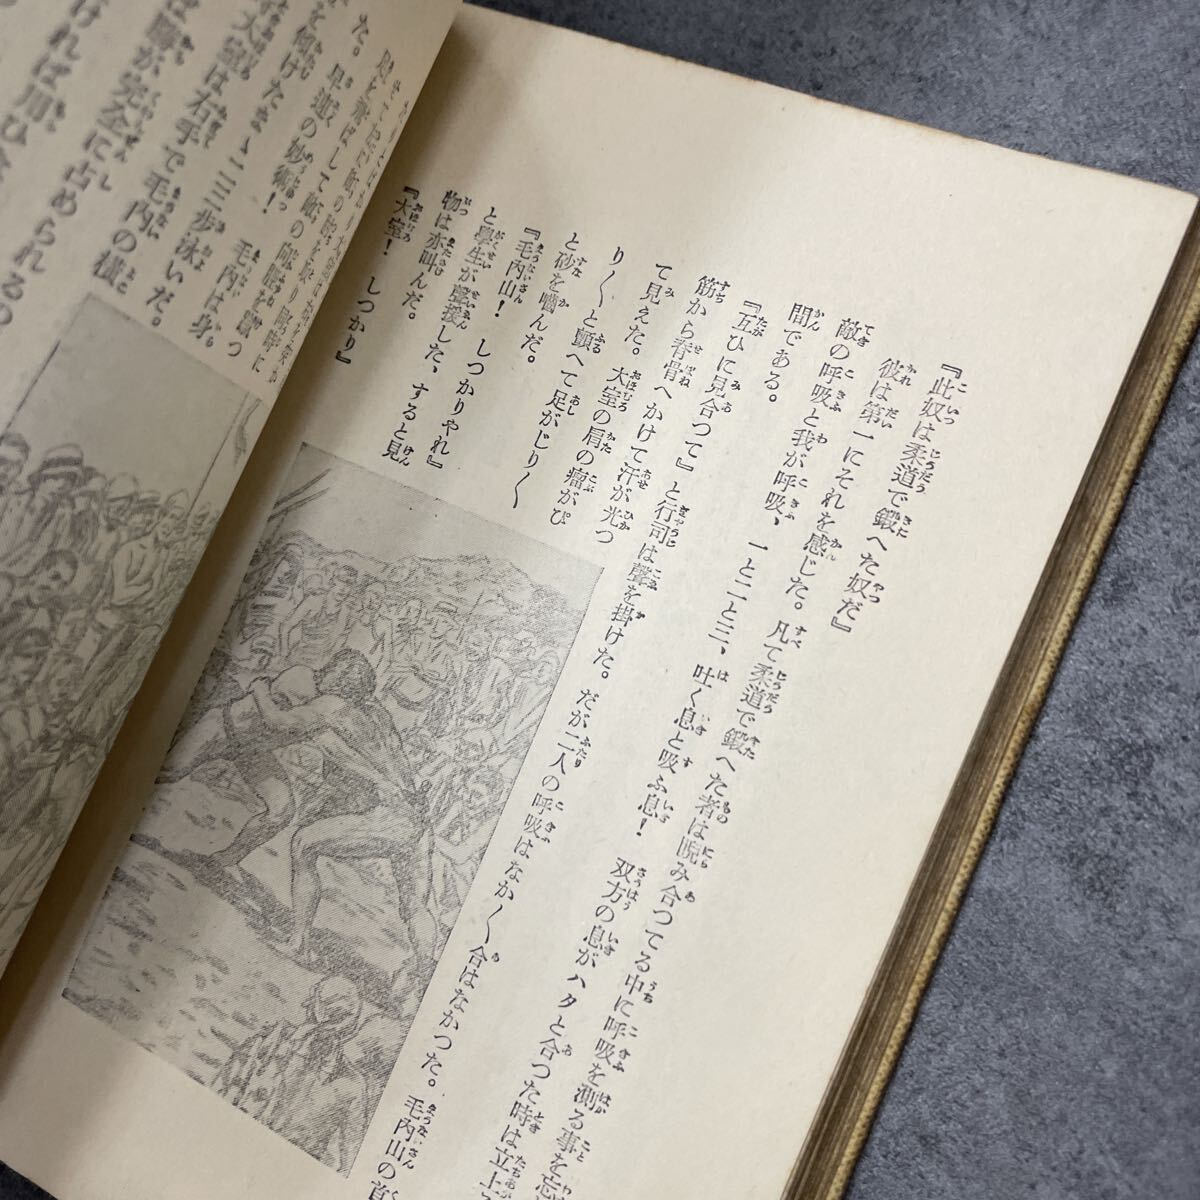 『此奴は柔道で鍛へた奴だ』
彼は第一にそれを感じた。凡て柔道で鍛へた者は睨み合つてる中に呼吸を測る事を忘
敵の呼吸と我が呼吸、一と二と三、吐く息と吸ふ息!　双方の息がハタと合つた時は立上
間である。
『互ひに見合つて』と行司は聲を掛けた。だが二人の呼吸はなか〱合はなかつた。毛内山の首
筋から脊骨へかけて汗が光つ
て見えた。大室の肩の瘤がぴ
り〱と顫へて足がじり〱
と砂を嚙んだ。
『毛内山!　しつかりやれ』
と學生が聲援した、すると見
物は亦叫んだ。
『大室!　しつかり』
た。早速の妙術!　毛内は身
を傾けたまゝ二三歩泳いだ。
大室は右手で毛内の横
は勝が完全に占められるの
ければ川ひ